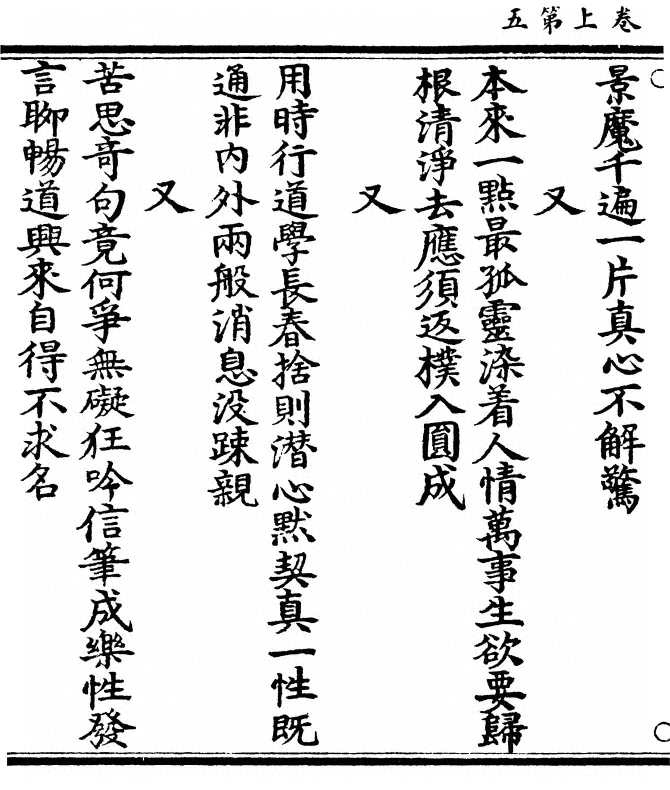 卷上第五
景魔千遍一片真心不解驚
又
本來一點最孤靈染着人情萬事生欲要歸
根清淨去應須返樸入圓成
又
用時行道學長春捨則潜心默契真一性既
通非内外兩般消息没踈親
又
苦思奇句竟何爭無礙狂吟信筆成樂性發
言聊暢道興來自得不求名